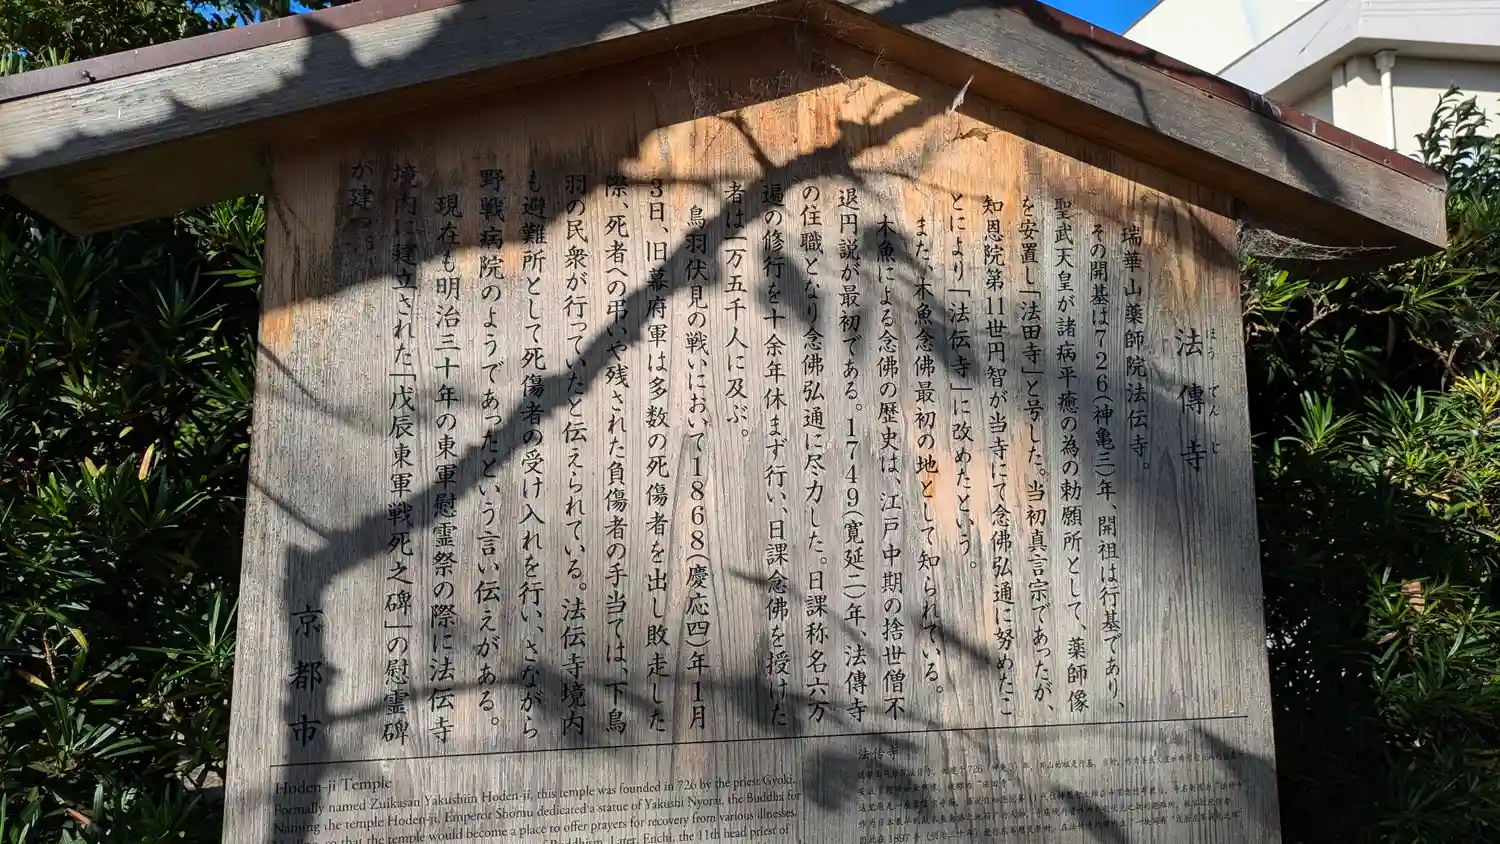 ほうでんじ
法傳寺
瑞華山薬師院法伝寺。
その開基は726(神亀三)年、開祖は行基であり、
聖武天皇が諸病平癒の為の勅願所として、薬師像
を安置し「法田寺」と号した。当初真言宗であったが、
知恩院第11世円智が当寺にて念佛弘通に努めたこ
とにより「法伝寺」に改めたという。
また、木魚念佛最初の地として知られている。
木魚による念佛の歴史は、江戸中期の捨世僧不
退円説が最初である。1749(寛延二)年、法傳寺
の住職となり念佛弘通に尽力した。日課称名六万
遍の修行を十余年休まず行い、日課念佛を授けた
者は一万五千人に及ぶ。
鳥羽伏見の戦いにおいて1868(慶応四)年1月
3日、旧幕府軍は多数の死傷者を出し敗走した
際、死者への弔いや残された負傷者の手当ては、下鳥
羽の民衆が行っていたと伝えられている。法伝寺境内
も避難所として死傷者の受け入れを行い、さながら
野戦病院のようであったという言い伝えがある。
現在も明治三十年の東軍慰霊祭の際に法伝寺
境内に建立された「戊辰東軍戦死之碑」の慰霊碑
が建つ。
京都市
Hoden-ji Temple
Formally named Zuikasan Yakushiin Hoden-ji, this temple was founded in 726 by the priest Gyoki.
Naming the temple Hoden-ji, Emperor Shomu dedicated a statue of Yakushi Nyorai, the Buddha for
so that the temple would become a place to offer prayers for recovery from various illnesses.
of Buddhism. Later, Enchi, the 11th head priest of
法传寺